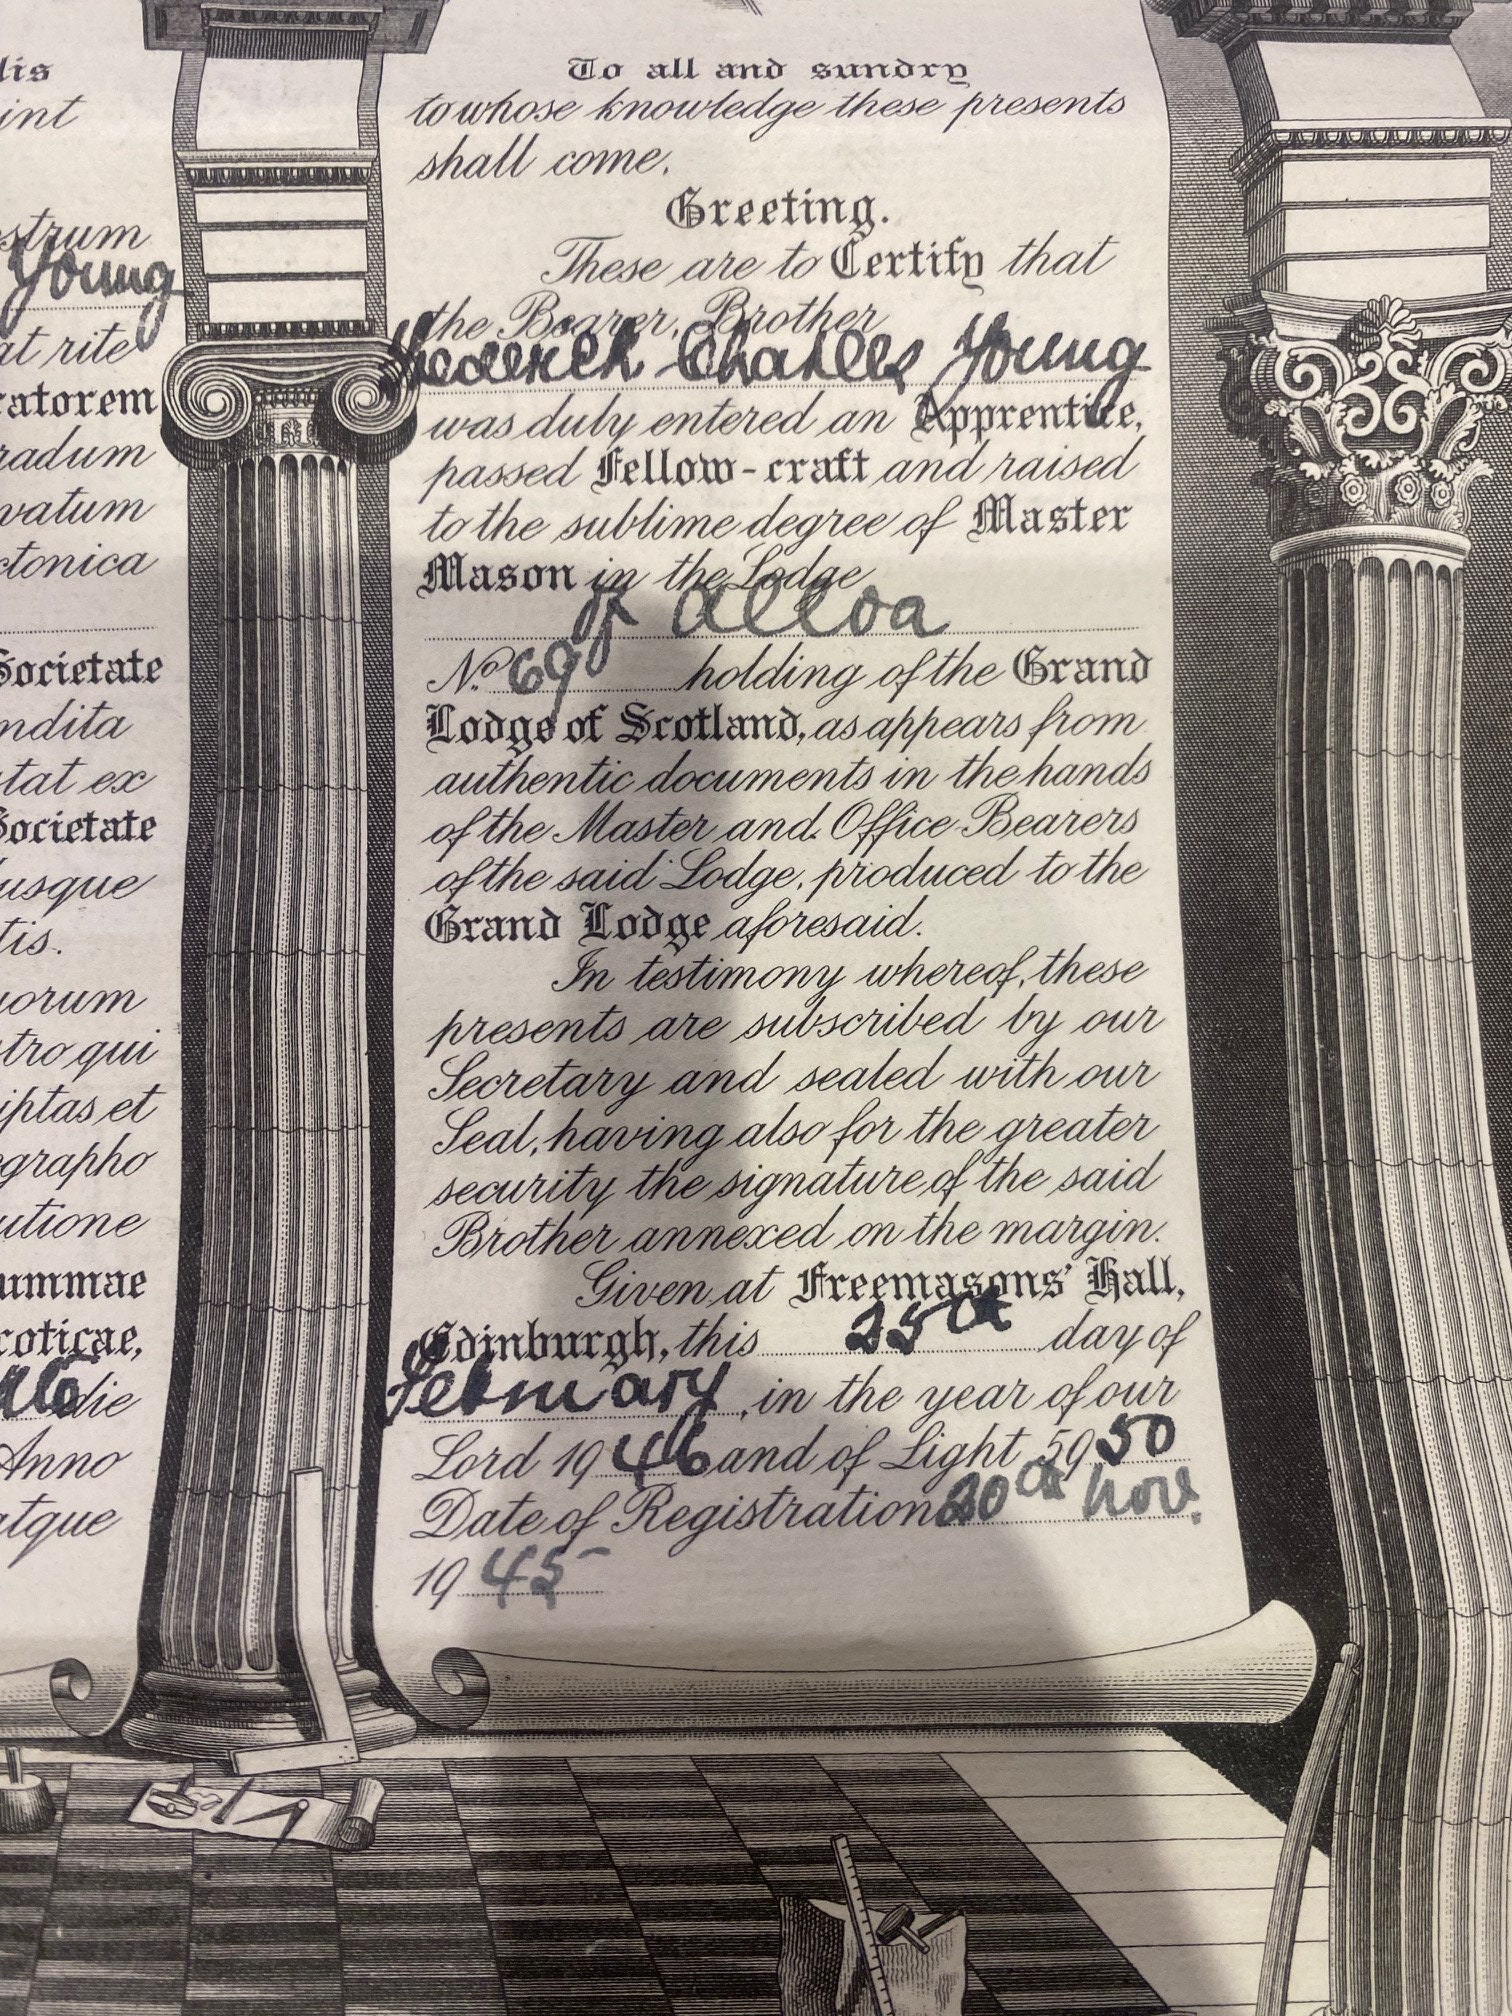 lis
int
strum
Young
at rite
ratorem
radum
vatum
ctonica
Societate
ndita
tat ex
Societate
usque
tis.
uorum
tro qui
iptas et
grapho
utione
ummae
coticae,
die
Anno
atque
To all and sundry
to whose knowledge these presents
shall come.
Greeting.
These are to Certify that
the Bearer, Brother
Frederick Charles Young
was duly entered an Apprentice,
passed Fellow-craft and raised
to the sublime degree of Master
Mason in the Lodge
of Alloa
No. 69 holding of the Grand
Lodge of Scotland, as appears from
authentic documents in the hands
of the Master and Office-Bearers
of the said Lodge, produced to the
Grand Lodge aforesaid.
In testimony whereof, these
presents are subscribed by our
Secretary and sealed with our
Seal, having also for the greater
security the signature of the said
Brother annexed on the margin.
Given at Freemasons' Hall,
Edinburgh, this 25th day of
February, in the year of our
Lord 1946 and of Light 5950
Date of Registration 20th Nov.
1945